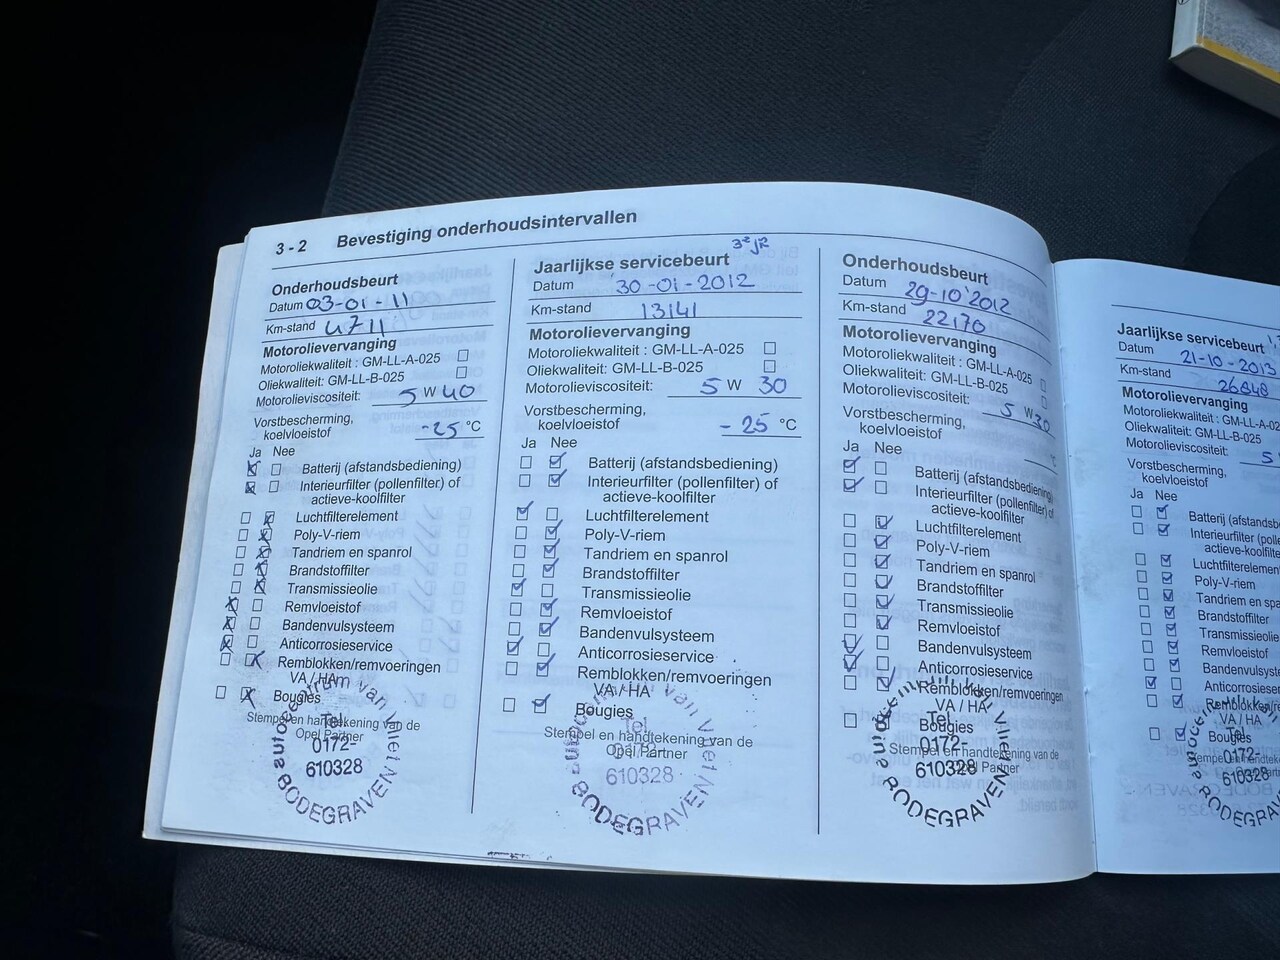 3 - 2 Bevestiging onderhoudsintervallen
Onderhoudsbeurt
Datum 03-01-11
Km-stand 4711
Motorolievervanging
Motoroliekwaliteit : GM-LL-A-025
Oliekwaliteit: GM-LL-B-025
Motorolieviscositeit: 5 W 40
Vorstbescherming,
koelvloeistof -25 °C
Ja Nee
Batterij (afstandsbediening)
Interieurfilter (pollenfilter) of
actieve-koolfilter
Luchtfilterelement
Poly-V-riem
Tandriem en spanrol
Brandstoffilter
Transmissieolie
Remvloeistof
Bandenvulsysteem
Anticorrosieservice
Remblokken/remvoeringen
VA / HA
Bougies
Stempel en handtekening van de
Opel Partner
autocentrum van Vliet
Tel.
0172-
610328
BODEGRAVEN
3e jr
Jaarlijkse servicebeurt
Datum 30-01-2012
Km-stand 13141
Motorolievervanging
Motoroliekwaliteit : GM-LL-A-025
Oliekwaliteit: GM-LL-B-025
Motorolieviscositeit: 5 W 30
Vorstbescherming,
koelvloeistof -25 °C
Ja Nee
Batterij (afstandsbediening)
Interieurfilter (pollenfilter) of
actieve-koolfilter
Luchtfilterelement
Poly-V-riem
Tandriem en spanrol
Brandstoffilter
Transmissieolie
Remvloeistof
Bandenvulsysteem
Anticorrosieservice
Remblokken/remvoeringen
VA / HA
Bougies
Stempel en handtekening van de
Opel Partner
van Vliet
Tel.
0172-
610328
BODEGRAVEN
Onderhoudsbeurt
Datum 29-10 2012
Km-stand 22170
Motorolievervanging
Motoroliekwaliteit : GM-LL-A-025
Oliekwaliteit: GM-LL-B-025
Motorolieviscositeit: 5 W 30
Vorstbescherming,
koelvloeistof °C
Ja Nee
Batterij (afstandsbediening)
Interieurfilter (pollenfilter) of
actieve-koolfilter
Luchtfilterelement
Poly-V-riem
Tandriem en spanrol
Brandstoffilter
Transmissieolie
Remvloeistof
Bandenvulsysteem
Anticorrosieservice
Remblokken/remvoeringen
VA / HA
Bougies
Stempel en handtekening van de
Opel Partner
Vliet
Tel.
0172-
610328
BODEGRAVEN
Jaarlijkse servicebeurt
Datum 21-10-2013
Km-stand 26848
Motorolievervanging
Motoroliekwaliteit : GM-LL-A-02
Oliekwaliteit: GM-LL-B-025
Motorolieviscositeit: 5
Vorstbescherming,
koelvloeistof
Ja Nee
Batterij (afstandsb
Interieurfilter (polle
actieve-koolfilte
Luchtfilterelemen
Poly-V-riem
Tandriem en spa
Brandstoffilter
Transmissieolie
Remvloeistof
Bandenvulsyste
Anticorrosieser
Remblokken/re
VA / HA
Bougies
Stempel en handteke
Tel.
0172-
610328
BODEGRAV